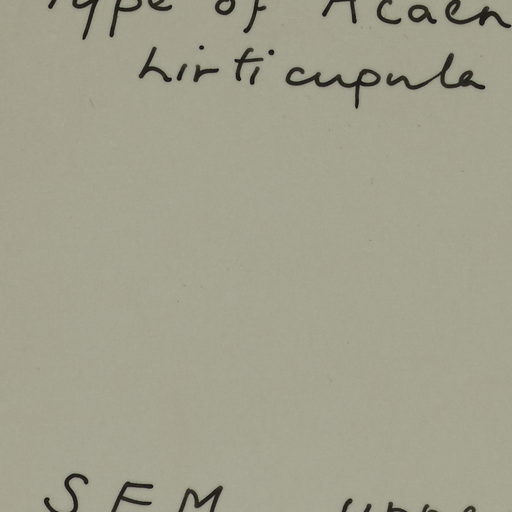 Type of Acaen
hirticupula
SEM uppe